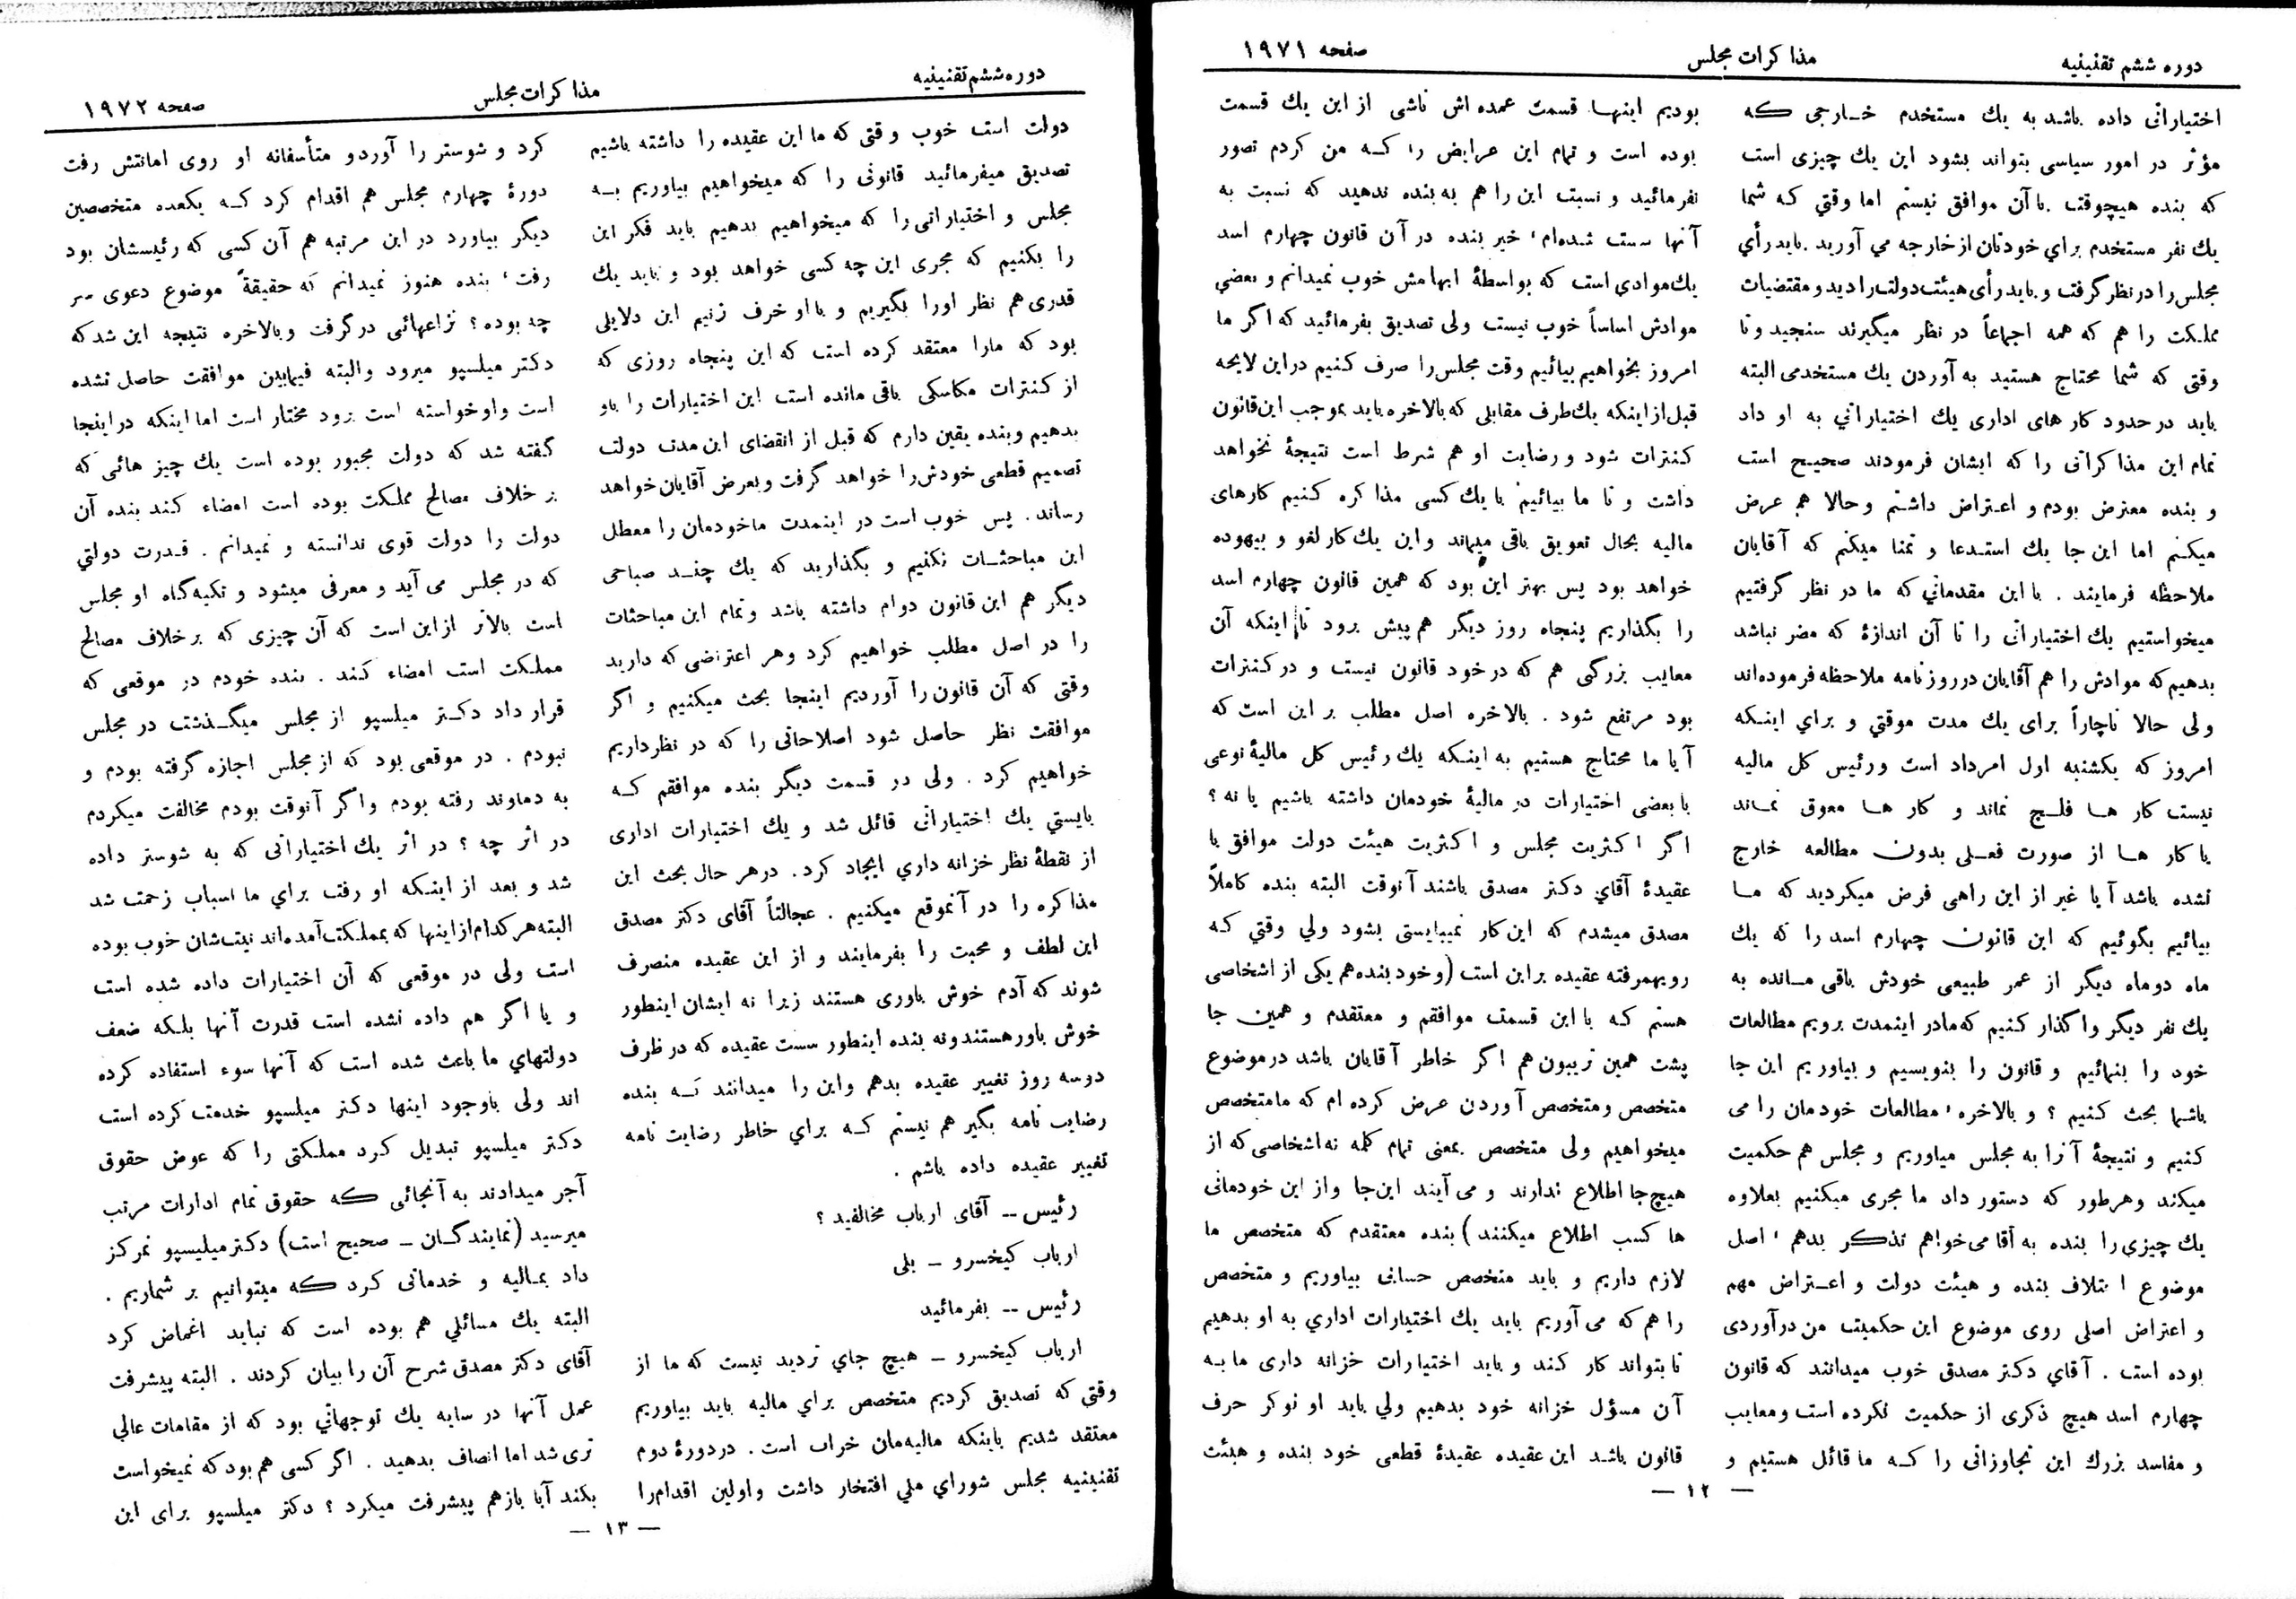 دوره ششم تقنینیه
مذاکرات مجلس
صفحه ۱۹۷۱
اختیاراتی داده باشد به یك مستخدم خـارجی کـه
مؤثر در امور سیاسی بتواند بشود این یك چیزی است
که بنده هیچوقت با آن موافق نیستم اما وقتي کـه شما
یك نفر مستخدم براي خودتان ازخارجه مي آورید باید رأي
مجلس را در نظر گرفت و باید رأی هیئت دولت را دید و مقتضیات
مملکت را هم که همه اجماعاً در نظر میگیرند سنجید و تا
وقتی که شما محتاج هستید به آوردن یك مستخدمی البته
باید در حدود کار های اداری یك اختیاراتي به او داد
تمام این مذاکراتی را که ایشان فرمودند صحیـح است
و بنده معترض بودم و اعـتراض داشـتم و حالا هم عرض
میکـنم اما این جا یك استـدعا و تمنا میکنم که آقایان
ملاحظه فرمایند . با این مقدماتي که ما در نظر گرفتیم
میخواستیم یك اختیاراتی را تا آن اندازهٔ که مضر نباشد
بدهیم که موادش را هم آقایان در روزنامه ملاحظه فرموده‌اند
ولی حالا ناچاراً برای یك مدت موقتي و براي اینـکه
امروز که یکشنبه اول امرداد است ورئیس کل مالیه
نیست کار هـا فلـج نماند و کار هـا معوق نمـاند
یا کار هـا از صورت فعـلی بدون مطالعه خارج
نشده باشد آیا غیر از این راهی فرض میکردید که مـا
بیائیم بگوئیم که این قانون چهارم اسد را که یك
ماه دوماه دیگر از عمر طبیعی خودش باقی مـانده به
یك نفر دیگر واگذار کـنیم که مادر اینمدت برویم مطالعات
خود را بنمائیم و قانون را بنویسیم و بیاوریم این جا
باشما بحث کنیم ؟ و بالاخره ، مطالعات خودمان را می
کنیم و نتیجهٔ آنرا به مجلس میاوریم و مجلس هم حکمیت
میکند وهرطور که دستور داد ما مجری میکنیم بعلاوه
یك چیزی را بنده به آقا می‌خواهم تذکـر بدهم ، اصل
موضوع ائتلاف بنده و هیئت دولت و اعـتراض مهم
و اعتراض اصلی روی موضوع این حکمیت من درآوردی
بوده است . آقاي دکتر مصدق خوب میدانند که قانون
چهارم اسد هیچ ذکری از حکمیت نکرده است و معایب
و مفاسد بزرك این تجاوزاتی را کـه ما قائل هستیم و
بودیم اینهـا قسمت عمده اش ناشی از این یك قسمت
بوده است و تمام این عرایض را کـه من کردم تصور
نفرمائید و نسبت این را هم به بنده ندهید که نسبت به
آنها سست شده‌ام ، خیر بنده در آن قانون چهارم اسد
یك موادي است که بواسطهٔ ابهامش خوب نمیدانم و بعضي
موادش اساساً خوب نیست ولی تصدیق بفرمائید که اگر ما
امروز بخواهیم بیائیم وقت مجلس را صرف کـنیم دراین لایحه
قبل از اینکه یك طرف مقابلی که بالاخره باید بموجب این قانون
کـنترات شود و رضایت او هم شرط است نتیجهٔ نخواهد
داشت و تا ما بیائیم با یك کسی مذاکره کـنیم کارهای
مالیه بحال تعویق باقی میماند و این یك کار لغو و بیهوده
خواهد بود پس بهتر این بود که همین قانون چهارم اسد
را بگذاریم پنجاه روز دیگر هم پیش برود تا اینکه آن
معایب بزرگی هم که در خود قانون نیست و در کـنترات
بود مرتفع شود . بالاخره اصل مطلب بر این است که
آیا ما محتاج هستیم به اینـکه یك رئیس کل مالیهٔ نوعی
با بعضی اختیارات در مالیهٔ خودمان داشته باشیم یا نه ؟
اگر اکثریت مجلس و اکثریت هیئت دولت موافق با
عقیدهٔ آقاي دکتر مصدق باشند آنوقت البته بنده کاملاً
مصدق میشدم که این کار نمیبایستی بشود ولي وقتي کـه
رو بهمرفته عقیده براین است (و خود بنده هم یکی از اشخاصی
هستم کـه با این قسمت موافقم و معتقدم و همین جا
پشت همین تریبون هم اگر خاطر آقایان باشد در موضوع
متخصص و متخصص آوردن عرض کرده ام که ما متخصص
میخواهیم ولی متخصص بمعنی تمام کلمه نه اشخاصی که از
هیچ‌جا اطلاع ندارند و می آیند این‌جا و از این خودمانی
ها کسب اطلاع میکنند) بنده معتقدم که متخصص ما
لازم داریم و باید متخصص حسابی بیاوریم و متخصص
را هم که می آوریم باید یك اختیارات اداري به او بدهیم
تا بتواند کار کند و باید اختیارات خزانه داری ما بـه
آن مسؤل خزانه خود بدهیم ولي باید او نوکر حرف
قانون باشد این عقیده عقیدهٔ قطعی خود بنده و هیئت
— ۱۲ —
دوره ششم تقنینیه
مذاکرات مجلس
صفحه ۱۹۷۲
دولت است خوب وقتی که ما این عقیده را داشته باشیم
تصدیق میفرمائید قانونی را که میخواهیم بیاوریم بـه
مجلس و اختیاراتی را که میخواهیم بدهیم باید فکر این
را بکنیم که مجری این چه کسی خواهد بود و باید یك
قدری هم نظر اورا بگیریم و با او حرف زنیم این دلایلی
بود که مارا معتقد کرده است که این پنجاه روزی که
از کـنترات مکاسکی باقی مانده است این اختیارات را باو
بدهیم و بنده یقین دارم که قبل از انقضای این مدت دولت
تصمیم قطعی خودش را خواهد گرفت و بعرض آقایان خواهد
رساند . پس خوب است در اینمدت ما خودمان را معطل
این مباحثـات نکنیم و بگذارید که یك چنـد صباحی
دیگر هم این قانون دوام داشته باشد و تمام این مباحثات
را در اصل مطلب خواهیم کرد و هر اعتراضی که دارید
وقتی که آن قانون را آوردیم اینجا بحث میکنیم و اگر
موافقت نظر حاصل شود اصلاحاتی را که در نظر داریم
خواهیم کرد . ولی در قسمت دیگر بنده موافقم کـه
بایستي یك اختیاراتی قائل شد و یك اختیارات اداری
از نقطهٔ نظر خزانه داري ایجاد کرد . در هر حال بحث این
مذاکره را در آنموقع میکنیم . عجالتاً آقای دکتر مصدق
این لطف و محبت را بفرمایند و از این عقیده منصرف
شوند که آدم خوش باوری هستند زیرا نه ایشان اینطور
خوش باور هستند و نه بنده اینطور سست عقیده که در ظرف
دوسه روز تغییر عقیده بدهم و این را میدانند کـه بنده
رضایت نامه بگیر هم نیستم کـه براي خاطر رضایت نامه
تغییر عقیده داده باشم .
رئیس -- آقای ارباب مخالفید ؟
ارباب کیخسرو – بلی
رئیس -- بفرمائید
ارباب کیخسرو – هیچ جاي تردید نیست که ما از
وقتي که تصدیق کردیم متخصص براي مالیه باید بیاوریم
معتقد شدیم باینکه مالیه‌مان خراب است . در دورهٔ دوم
تقنینیه مجلس شوراي ملي افتخار داشت و اولین اقدام را
کرد و شوستر را آورد و متأسفانه او روی امانتش رفت
دورهٔ چهارم مجلس هم اقدام کرد کـه یکعده متخصصین
دیگر بیاورد در این مرتبه هم آن کسی که رئیسشان بود
رفت ، بنده هنوز نمیدانم که حقیقةً موضوع دعوی سر
چه بوده ؟ نزاعهائی در گرفت و بالاخره نتیجه این شد که
دکتر میلسپو میرود والبته فیمابین موافقت حاصل نشده
است و او خواسته است برود مختار است اما اینکه در اینجا
گفته شد که دولت مجبور بوده است یك چیز هائی که
بر خلاف مصالح مملکت بوده است امضاء کـند بنده آن
دولت را دولت قوی ندانسته و نمیدانم . قـدرت دولتي
که در مجلس می آید و معرفی میشود و تکیه‌گاه او مجلس
است بالاتر از این است که آن چیزی که بر خلاف مصالح
مملکت است امضاء کـند . بنده خودم در موقعی که
قرار داد دکـتر میلسپو از مجلس میگـذشت در مجلس
نبودم . در موقعی بود که از مجلس اجازه گرفته بودم و
به دماوند رفته بودم و اگر آنوقت بودم مخالفت میکردم
در اثر چه ؟ در اثر یك اختیاراتی که به شوستر داده
شد و بعد از اینـکه او رفت براي ما اسباب زحمت شد
البته هر کدام از اینها که بمملـکت آمده‌اند نیت‌شان خوب بوده
است ولی در موقعی که آن اختیارات داده شده است
و یا اگر هم داده نشده است قدرت آنها بلـکه ضعف
دولتهاي ما باعث شده است که آنها سوء استفاده کرده
اند ولی باوجود اینها دکتر میلسپو خدمت کرده است
دکتر میلسپو تبدیل کرد مملـکتی را که عوض حقوق
آجر میدادند به آنجائی کـه حقوق تمام ادارات مرتب
میرسید (نمایندگـان – صحیح است) دکتر میلیسپو تمرکز
داد بمـالیه و خدماتی کرد کـه میتوانیم بر شماریم .
البته یك مسائلي هم بوده است که نباید اغماض کرد
آقای دکتر مصدق شرح آن را بیان کردند . البته پیشرفت
عمل آنها در سایه یك توجهاتي بود که از مقامات عالي
تری شد اما انصاف بدهید . اگر کسی هم بود که نمیخواست
بکند آیا بازهم پیشرفت میکرد ؟ دکتر میلسپو برای این
— ۱۳ —